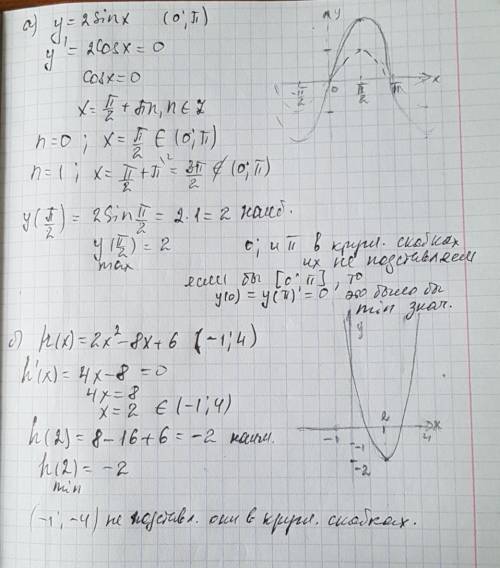 а) y = 2sinx (0; π)
y' = 2cosx = 0
cosx = 0
x = π/2 + πn, n ∈ Z
n = 0 ; x = π/2 ∈ (0; π)
n = 1 ; x = π/2 + π = 3π/2 ∉ (0; π)
y(π/2) = 2sin π/2 = 2·1 = 2 наиб.
y(π/2) = 2
max
0; и π в кругл. скобках
их не подставляем
если бы [0; π], то
y(0) = y(π) = 0 это было бы
min знач.
y
x
-π/2 0 π/2 π
б) h(x) = 2x² - 8x + 6 (-1; 4)
h'(x) = 4x - 8 = 0
4x = 8
x = 2 ∈ (-1; 4)
h(2) = 8 - 16 + 6 = -2 наим.
h(2) = -2
min
y
-1 2 x
4
-1
-2
(-1; -4) не подставл. они в кругл. скобках.